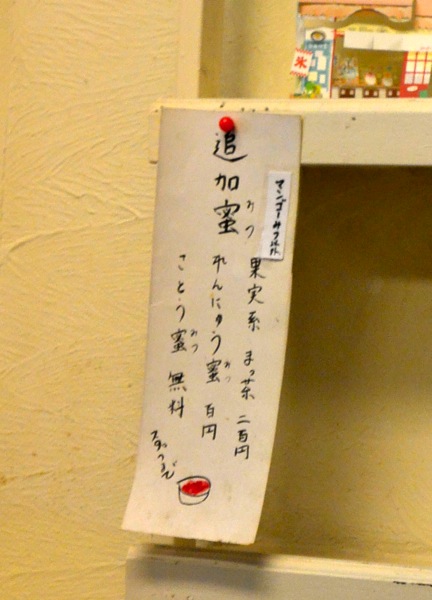 追加蜜
みつ
マンゴーみつ以外
果実系 まっ茶 二百円
れんにゅう蜜 百円
みつ
さとう蜜 無料
みつ
氷